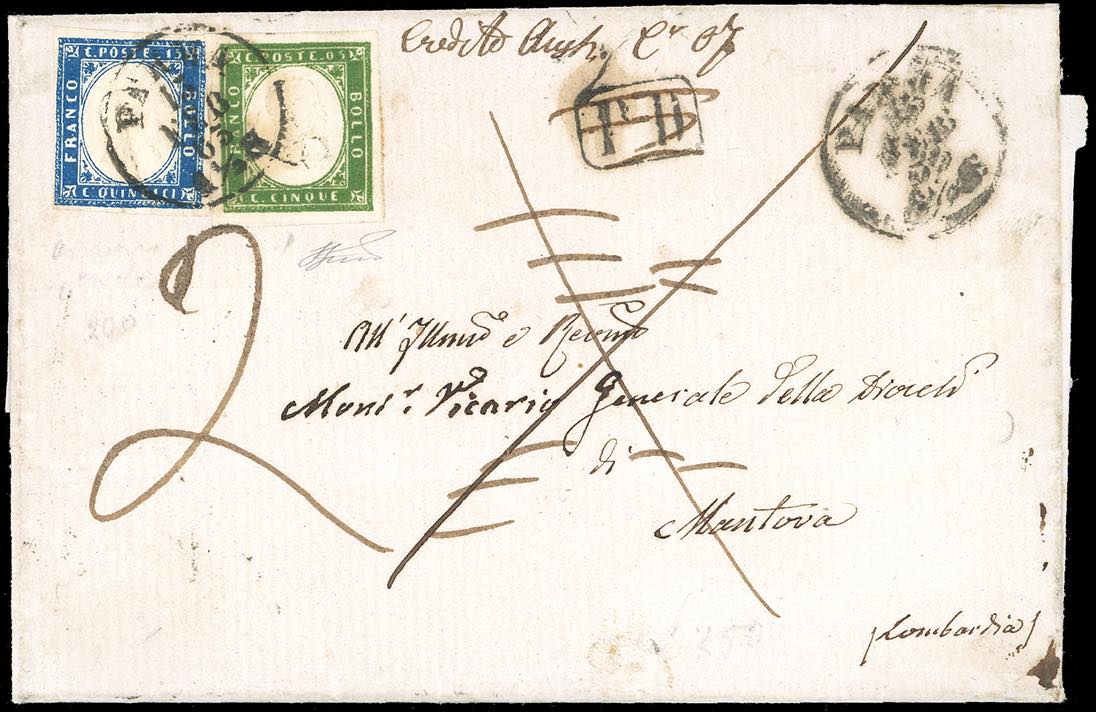 C. POSTE. 15
FRANCO
BOLLO
C. QUINDICI
C. POSTE. 05
FRANCO
BOLLO
C. CINQUE
Credito Aust.
P.D.
2
All' Illmo e Revmo
Monsr. Vicario Generale della Diocesi
di
Mantova
(Lombardia)
200
250